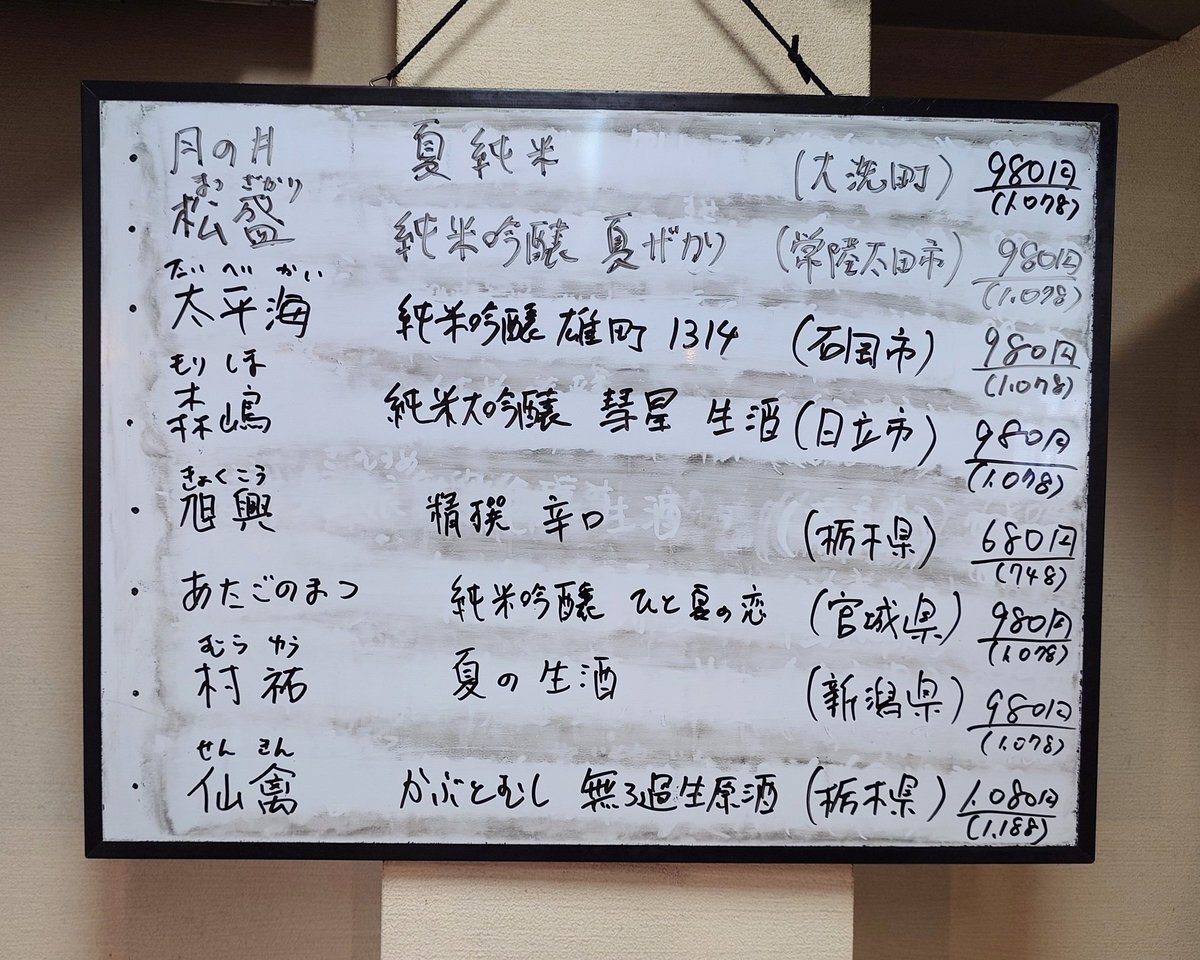 ・月の月 夏純米 (大洗町) 980円
(1.078)
まつ ざかり
・松盛 純米吟醸 夏ザかり (常陸太田市) 980円
(1.078)
たい へい かい
・太平海 純米吟醸 雄町 1314 (石岡市) 980円
(1.078)
もり しま
・森嶋 純米大吟醸 彗星 生酒 (日立市) 980円
(1.078)
きょくこう
・旭興 精撰 辛口 (栃木県) 680円
(748)
・あたごのまつ 純米吟醸 ひと夏の恋 (宮城県) 980円
(1.078)
むら ゆう
・村祐 夏の生酒 (新潟県) 980円
(1.078)
せん きん
・仙禽 かぶとむし 無ろ過生原酒 (栃木県) 1.080円
(1.188)